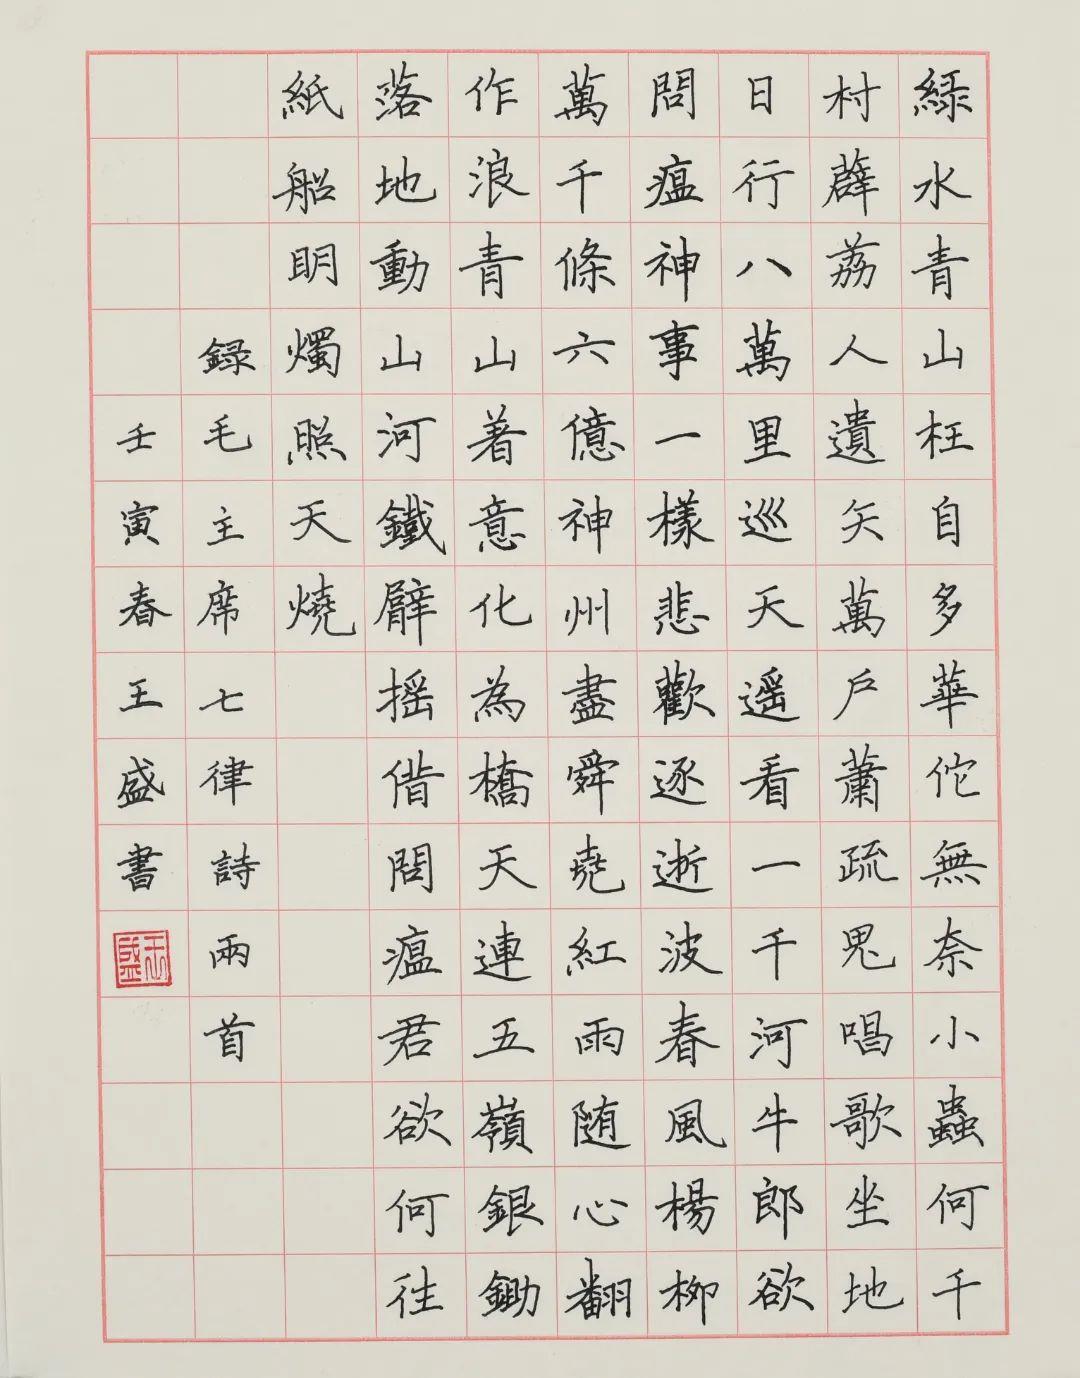 緑水青山枉自多華佗無奈小蟲何千
村薜荔人遺矢萬戶蕭疏鬼唱歌坐地
日行八萬里巡天遥看一千河牛郎欲
問瘟神事一樣悲歡逐逝波春風楊柳
萬千條六億神州盡舜堯紅雨随心翻
作浪青山着意化為橋天連五嶺銀鋤
落地動山河鐵臂摇借問瘟君欲何往
紙船明燭照天燒
録毛主席七律詩兩首
壬寅春王盛書
王盛